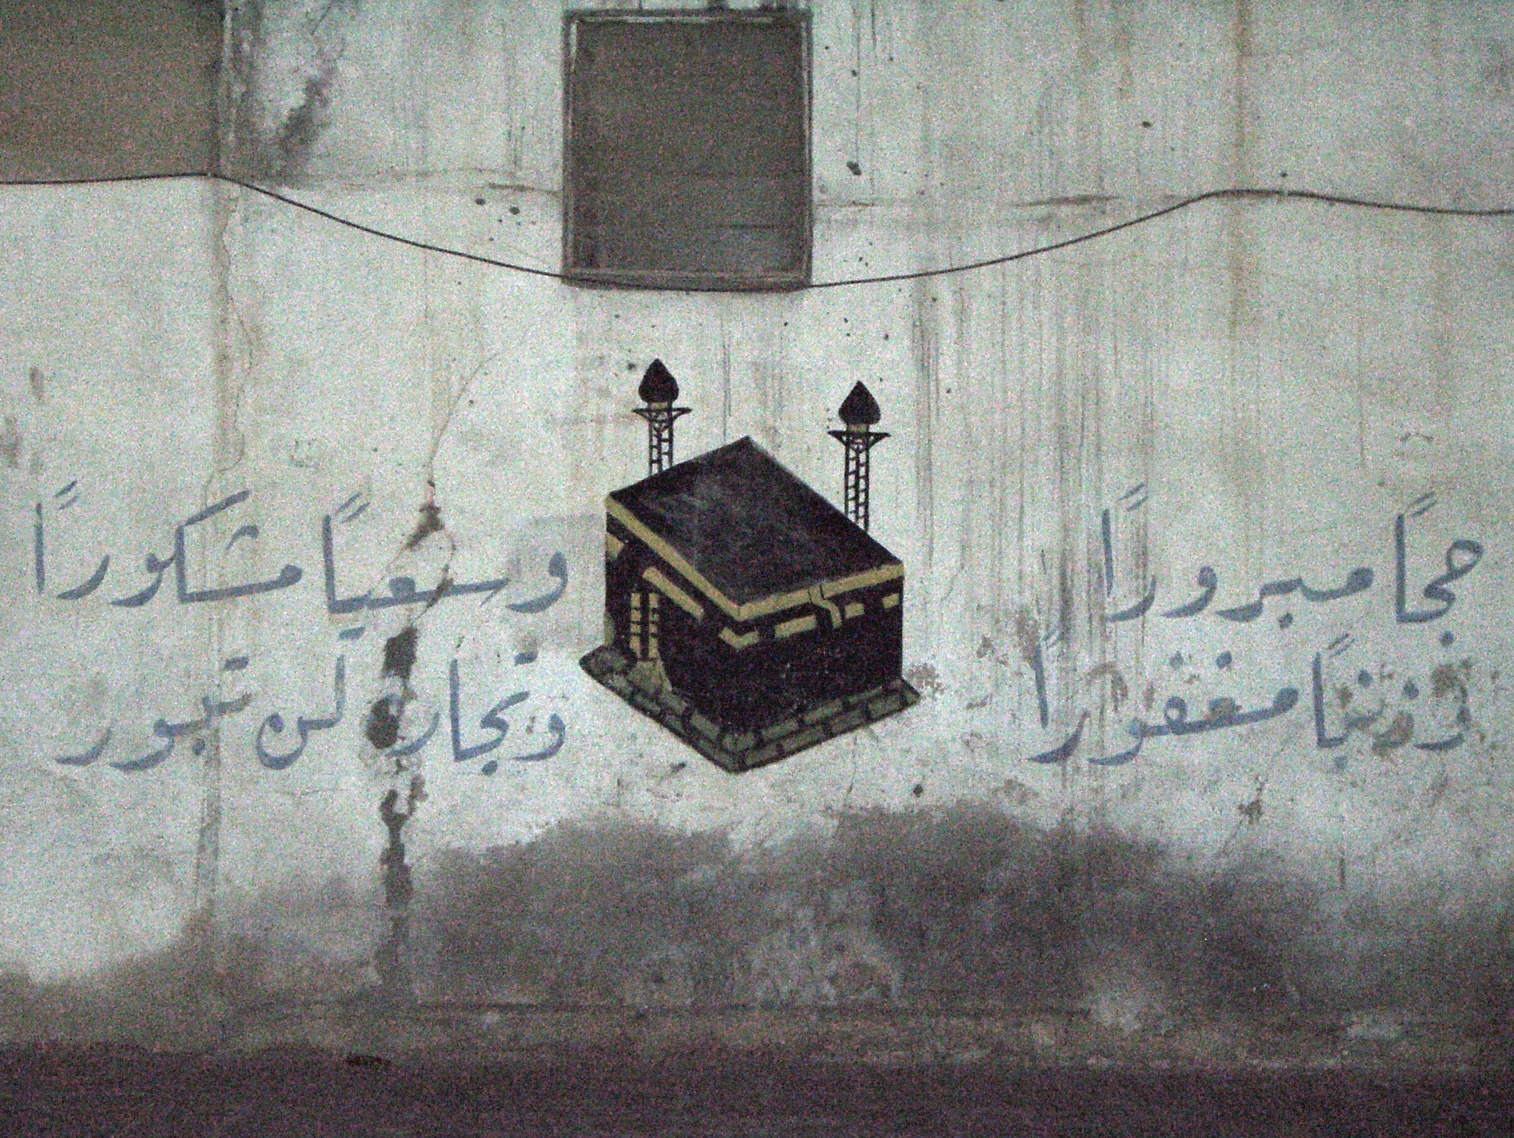 حجاً مبروراً وسعياً مشكوراً
وذنباً مغفوراً وتجارة لن تبور